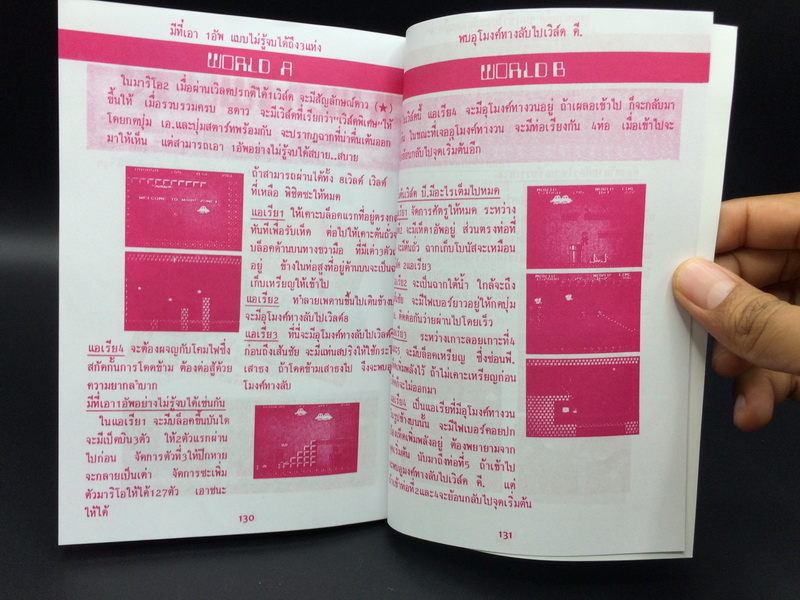 มีที่เอา 1อัพ แบบไม่รู้จบได้ถึง3แห่ง
WORLD A
ในมาริโอ2 เมื่อผ่านเวิลดปรกติได้1เวิล์ด จะมีสัญลักษณ์ดาว (★)
ขึ้นให้ เมื่อรวบรวมครบ 8ดาว จะมีเวิล์ดที่เรียกว่า"เวิล์ดพิเศษ"ให้
โดยกดปุ่ม เอ.และปุ่มสตาร์ทพร้อมกัน จะปรากฏฉากที่น่าตื่นเต้นออก
มาให้เห็น แต่สามารถเอา 1อัพอย่างไม่รู้จบได้สบาย..สบาย
ถ้าสามารถผ่านได้ทั้ง 8เวิลด์ เวิลด์
ที่เหลือ พิชิตซะให้หมด
แอเรีย1 ให้เคาะบล็อคแรกที่อยู่ตรง
ทันทีเพื่อรับเห็ด ต่อไปให้เคาะต้นถั่ว
บล็อคด้านบนทางขวามือ ที่มีเต่า3ตัว
อยู่ ข้างในท่อสูงที่อยู่ด้านบนจะเป็น
เก็บเหรียญให้เข้าไป
แอเรีย2 ทำลายเพดานขึ้นไปเดินข้าง
จะมีอุโมงค์ทางลับไปเวิลด์8
แอเรีย3 ที่นี่จะมีอุโมงค์ทางลับไปเวิลด์
ก่อนถึงเส้นชัย จะมีแท่นสปริงให้ใช้กระโ
เสาธง ถ้าโดดข้ามเสาธงไป จึงจะพบอุ
โมงค์ทางลับ
แอเรีย4 จะต้องผจญกับโคมไฟซึ่ง
สกัดกั้นการโดดข้าม ต้องต่อสู้ด้วย
ความยากลำบาก
มีที่เอา1อัพอย่างไม่รู้จบได้เช่นกัน
ในแอเรีย1 จะมีบล็อคขึ้นบันได
จะมีเป็ดบิน3ตัว ให้2ตัวแรกผ่าน
ไปก่อน จัดการตัวที่3ให้ปีกหาย
จะกลายเป็นเต่า จัดการซะเพิ่ม
ตัวมาริโอให้ได้127ตัว เอาชนะ
ให้ได้
130
พบอุโมงค์ทางลับไปเวิล์ด ดี.
WORLD B
เวิล์ดนี้ แอเรีย4 จะมีอุโมงค์ทางวนอยู่ ถ้าเผลอเข้าไป ก็จะกลับมา
ใน ในขณะที่เจออุโมงค์ทางวน จะมีท่อเรียงกัน 4ท่อ เมื่อเข้าไปจะ
ย้อนกลับไปจุดเริ่มต้นอีก
เวิล์ด บี.มีอะไรเต็มไปหมด
จัดการศัตรูให้หมด ระหว่าง
จะมีเห็ด1อัพอยู่ ส่วนตรงท่อที่
จะมีต้นถั่ว ฉากเก็บโบนัสจะเหมือน
2แอเรีย3
จะเป็นฉากใต้น้ำ ใกล้จะถึง
จะมีไฟเบอร์ยาวอยู่ให้กดปุ่ม
ติดต่อกันว่ายผ่านไปโดยเร็ว
ระหว่างเกาะลอยเกาะที่4
จะมีบล็อคเหรียญ ซึ่งซ่อนพื
เพิ่มพลังไว้ ถ้าไม่เคาะเหรียญก่อน
ก็จะไม่ออกมา
แอเรีย4 เป็นแอเรียที่มีอุโมงค์ทางวน
จะมีไฟเบอร์คอยปก
เห็ดเพิ่มพลังอยู่ ต้องพยายามจาก
จุดเริ่มต้น นับมาถึงท่อที่5 ถ้าเข้าไป
จะพบอุโมงค์ทางลับไปเวิล์ด ดี. แต่
ถ้าเข้าท่อที่2และ4จะย้อนกลับไปจุดเริ่มต้น
131